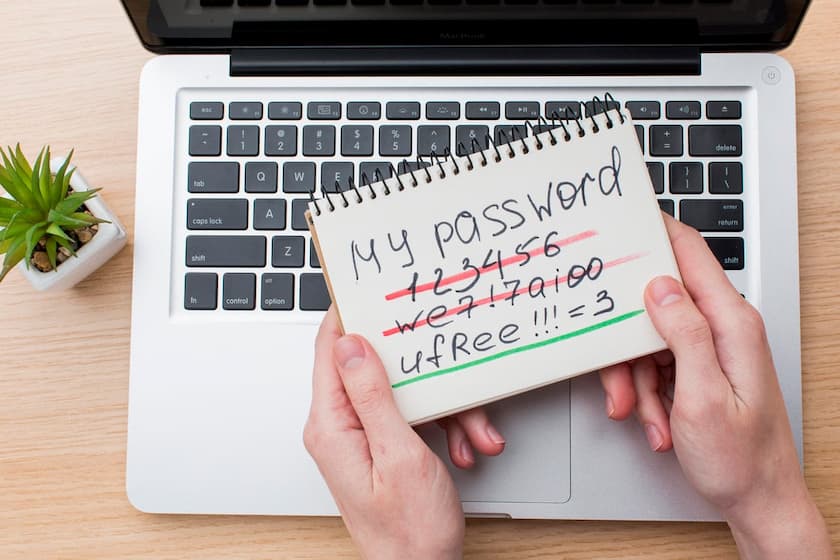 MacBook
esc
! @ # $ % ^ &
1 2 3 4 5 6
+
=
delete
tab Q W E
caps lock A
enter
return
shift Z
shift
alt
fn control option
My password
123456
we7!7aioo
ufRee!!!=3